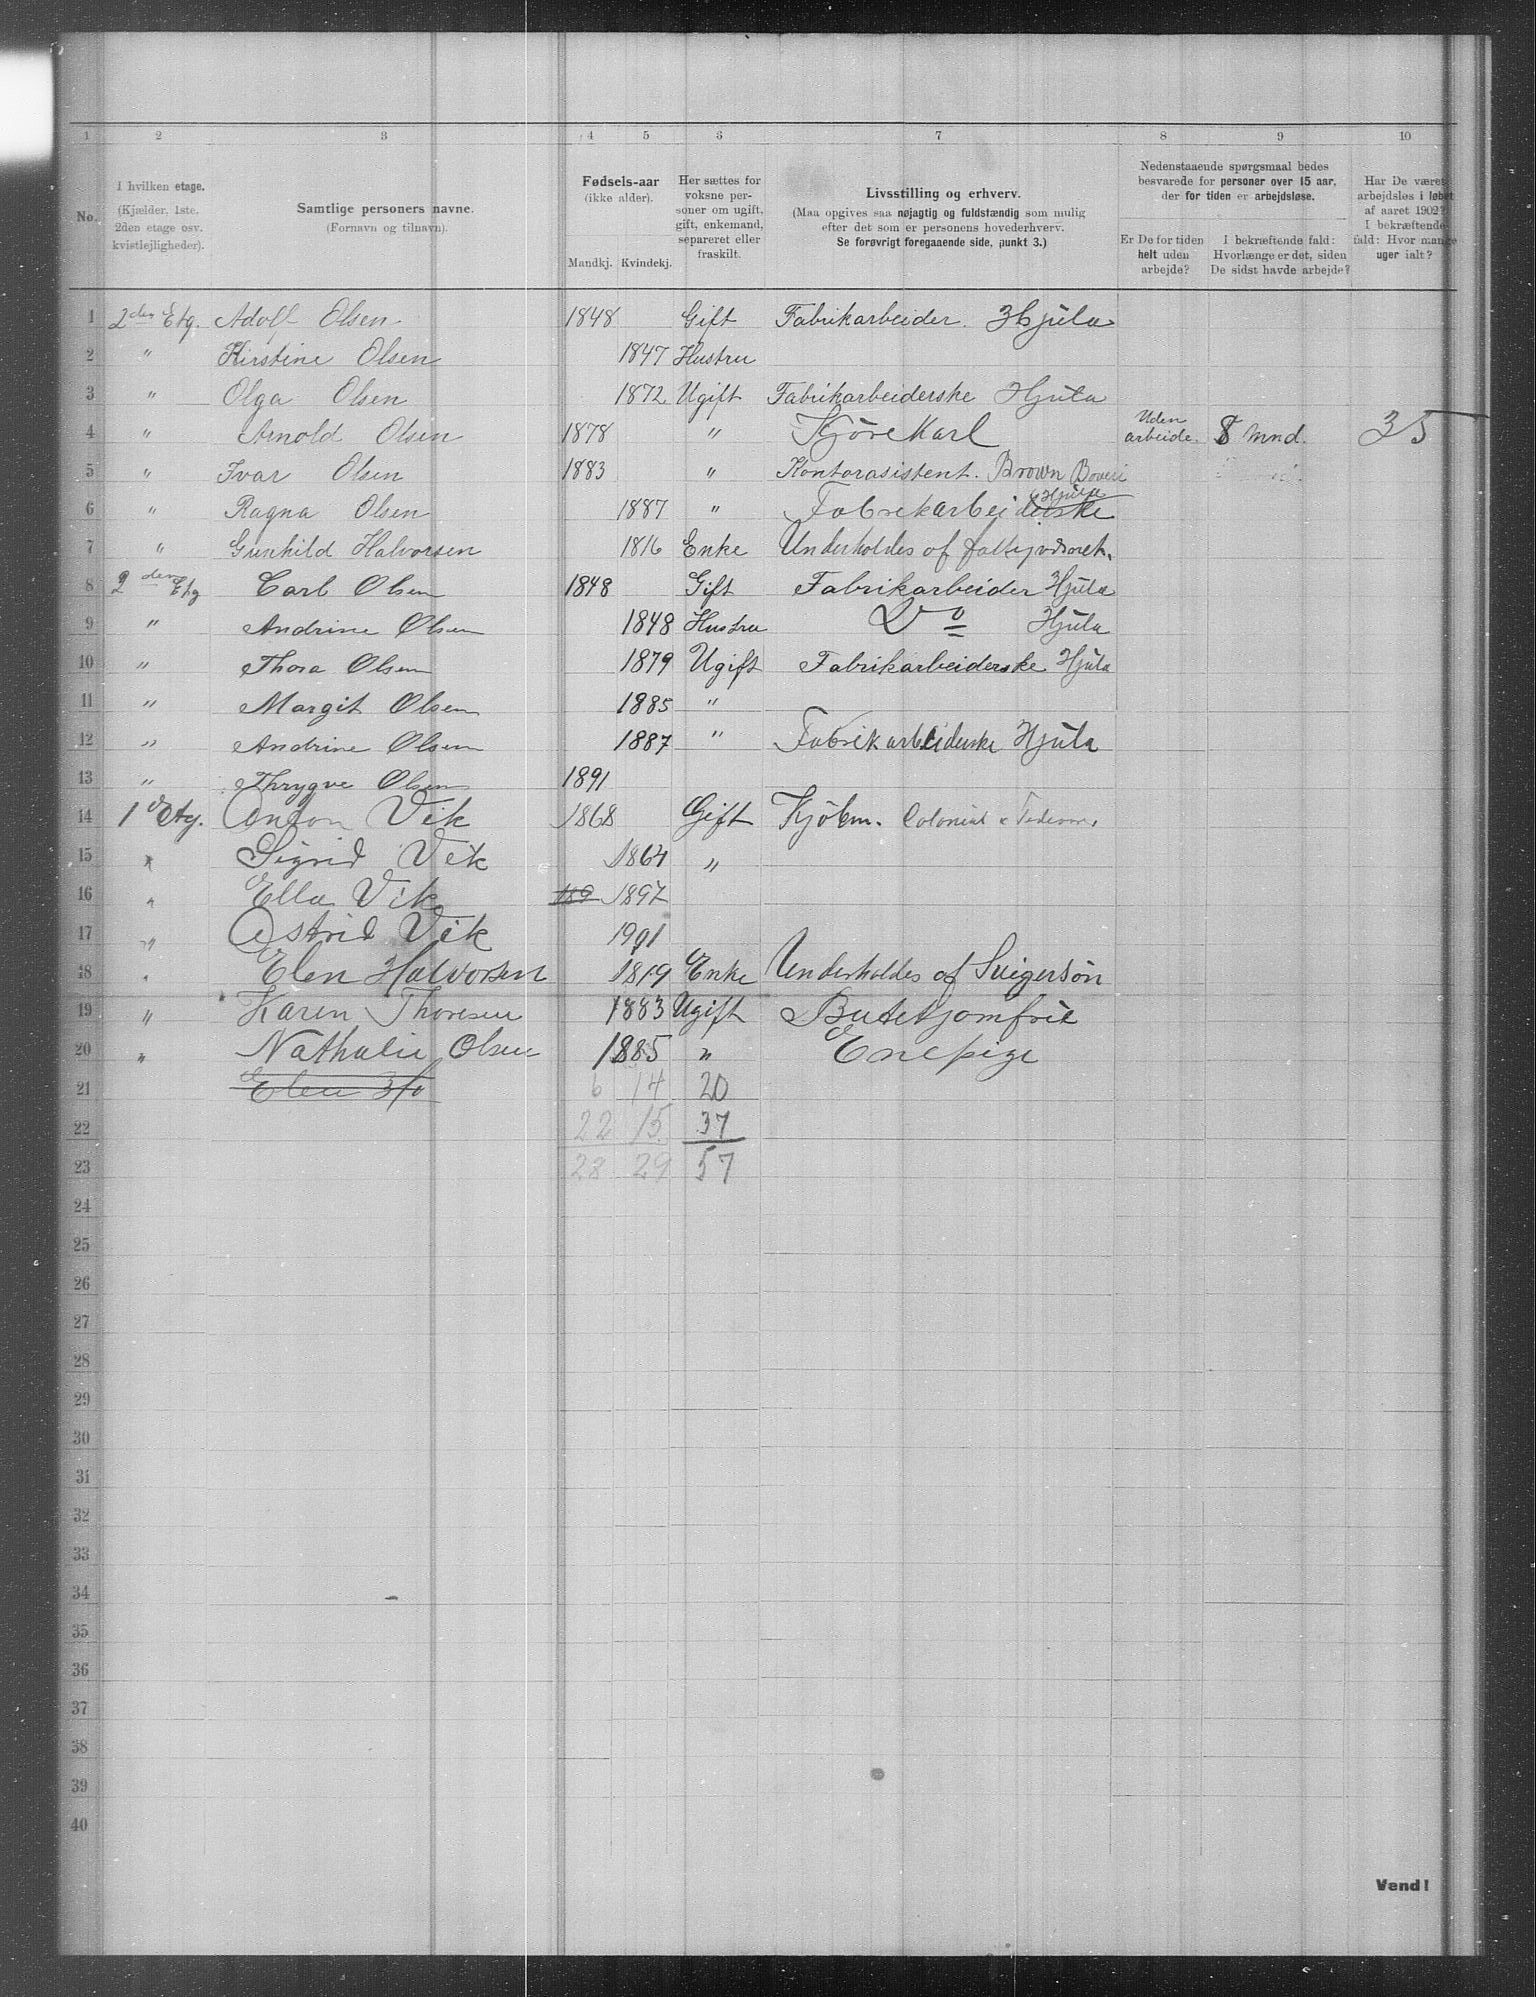 1 2 3 4 5 6 7 8 9 10
No.
I hvilken etage.
(Kjælder, 1ste,
2den etage osv.
kvistlejligheder).
Samtlige personers navne.
(Fornavn og tilnavn).
Fødsels-aar
(ikke alder).
Mandkj. Kvindekj.
Her sættes for
voksne per-
soner om ugift,
gift, enkemand,
separeret eller
fraskilt.
Livsstilling og erhverv.
(Maa opgives saa nøjagtig og fuldstændig som mulig
efter det som er personens hovederhverv.
Se forøvrigt foregaaende side, punkt 3.)
Nedenstaaende spørgsmaal bedes
besvarede for personer over 15 aar,
der for tiden er arbejdsløse.
Er De for tiden
helt uden
arbejde?
I bekræftende fald:
Hvorlænge er det, siden
De sidst havde arbejde?
Har De været
arbejdsløs i løbet
af aaret 1902?
I bekræftende
fald: Hvor mange
uger ialt?
1 2den Etg. Adolf Olsen 1848 Gift Fabrikarbeider. Hjula
2 " Kirstine Olsen 1847 Hustru
3 " Olga Olsen 1872 Ugift Fabrikarbeiderske Hjula
4 " Arnold Olsen 1878 " Kjørekarl Uden arbeide. 8 mnd. 35
5 " Ivar Olsen 1883 " Kontorasistent. Brown Boveri
6 " Ragna Olsen 1887 " Fabrekarbeiderske Hjula
7 " Gunhild Halvorsen 1816 Enke Underholdes of
8 2den Etg Carl Olsen 1848 Gift Fabrikarbeider Hjula
9 " Andrine Olsen 1848 Hustru Do Hjula
10 " Thora Olsen 1879 Ugift Fabrikarbeiderske Hjula
11 " Margit Olsen 1885 "
12 " Andrine Olsen 1887 " Fabrikarbeiderske Hjula
13 " Thrygve Olsen 1891
14 1 Etg. Anton Vik 1868 Gift Kjøbm. Colonial &
15 " Sigrid Vik 1864 "
16 " Ella Vik 189 1897
17 " Astrid Vik 1901
18 " Elen Halvorsen 1819 Enke Underholdes af Svigersøn
19 " Karen Thoresen 1883 Ugift Butikjomfrie
20 " Nathalie Olsen 1885 " Enepige
21 Elen Ha 6 14 20
22 22 15 37
23 28 29 57
24
25
26
27
28
29
30
31
32
33
34
35
36
37
38
39
40
Vend!